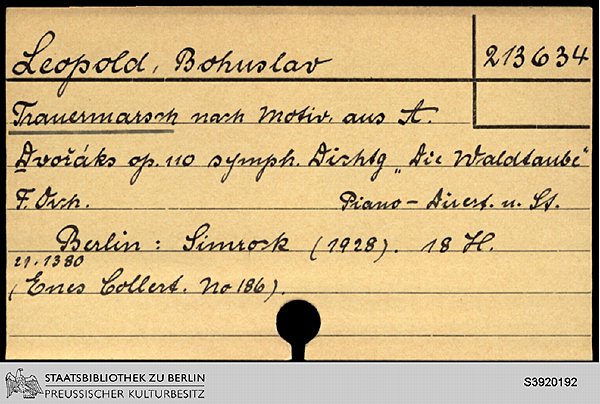 Leopold, Bohuslav
213634
Trauermarsch nach Motiv. aus A.
Dvořáks op. 110 symph. Dichtg „Die Waldtaube“
F. Orch. Piano-Direct. u. St.
Berlin: Simrock (1928). 18 H.
21.1380
(Enes Collect. No 186).
STAATSBIBLIOTHEK ZU BERLIN
PREUSSISCHER KULTURBESITZ
S3920192